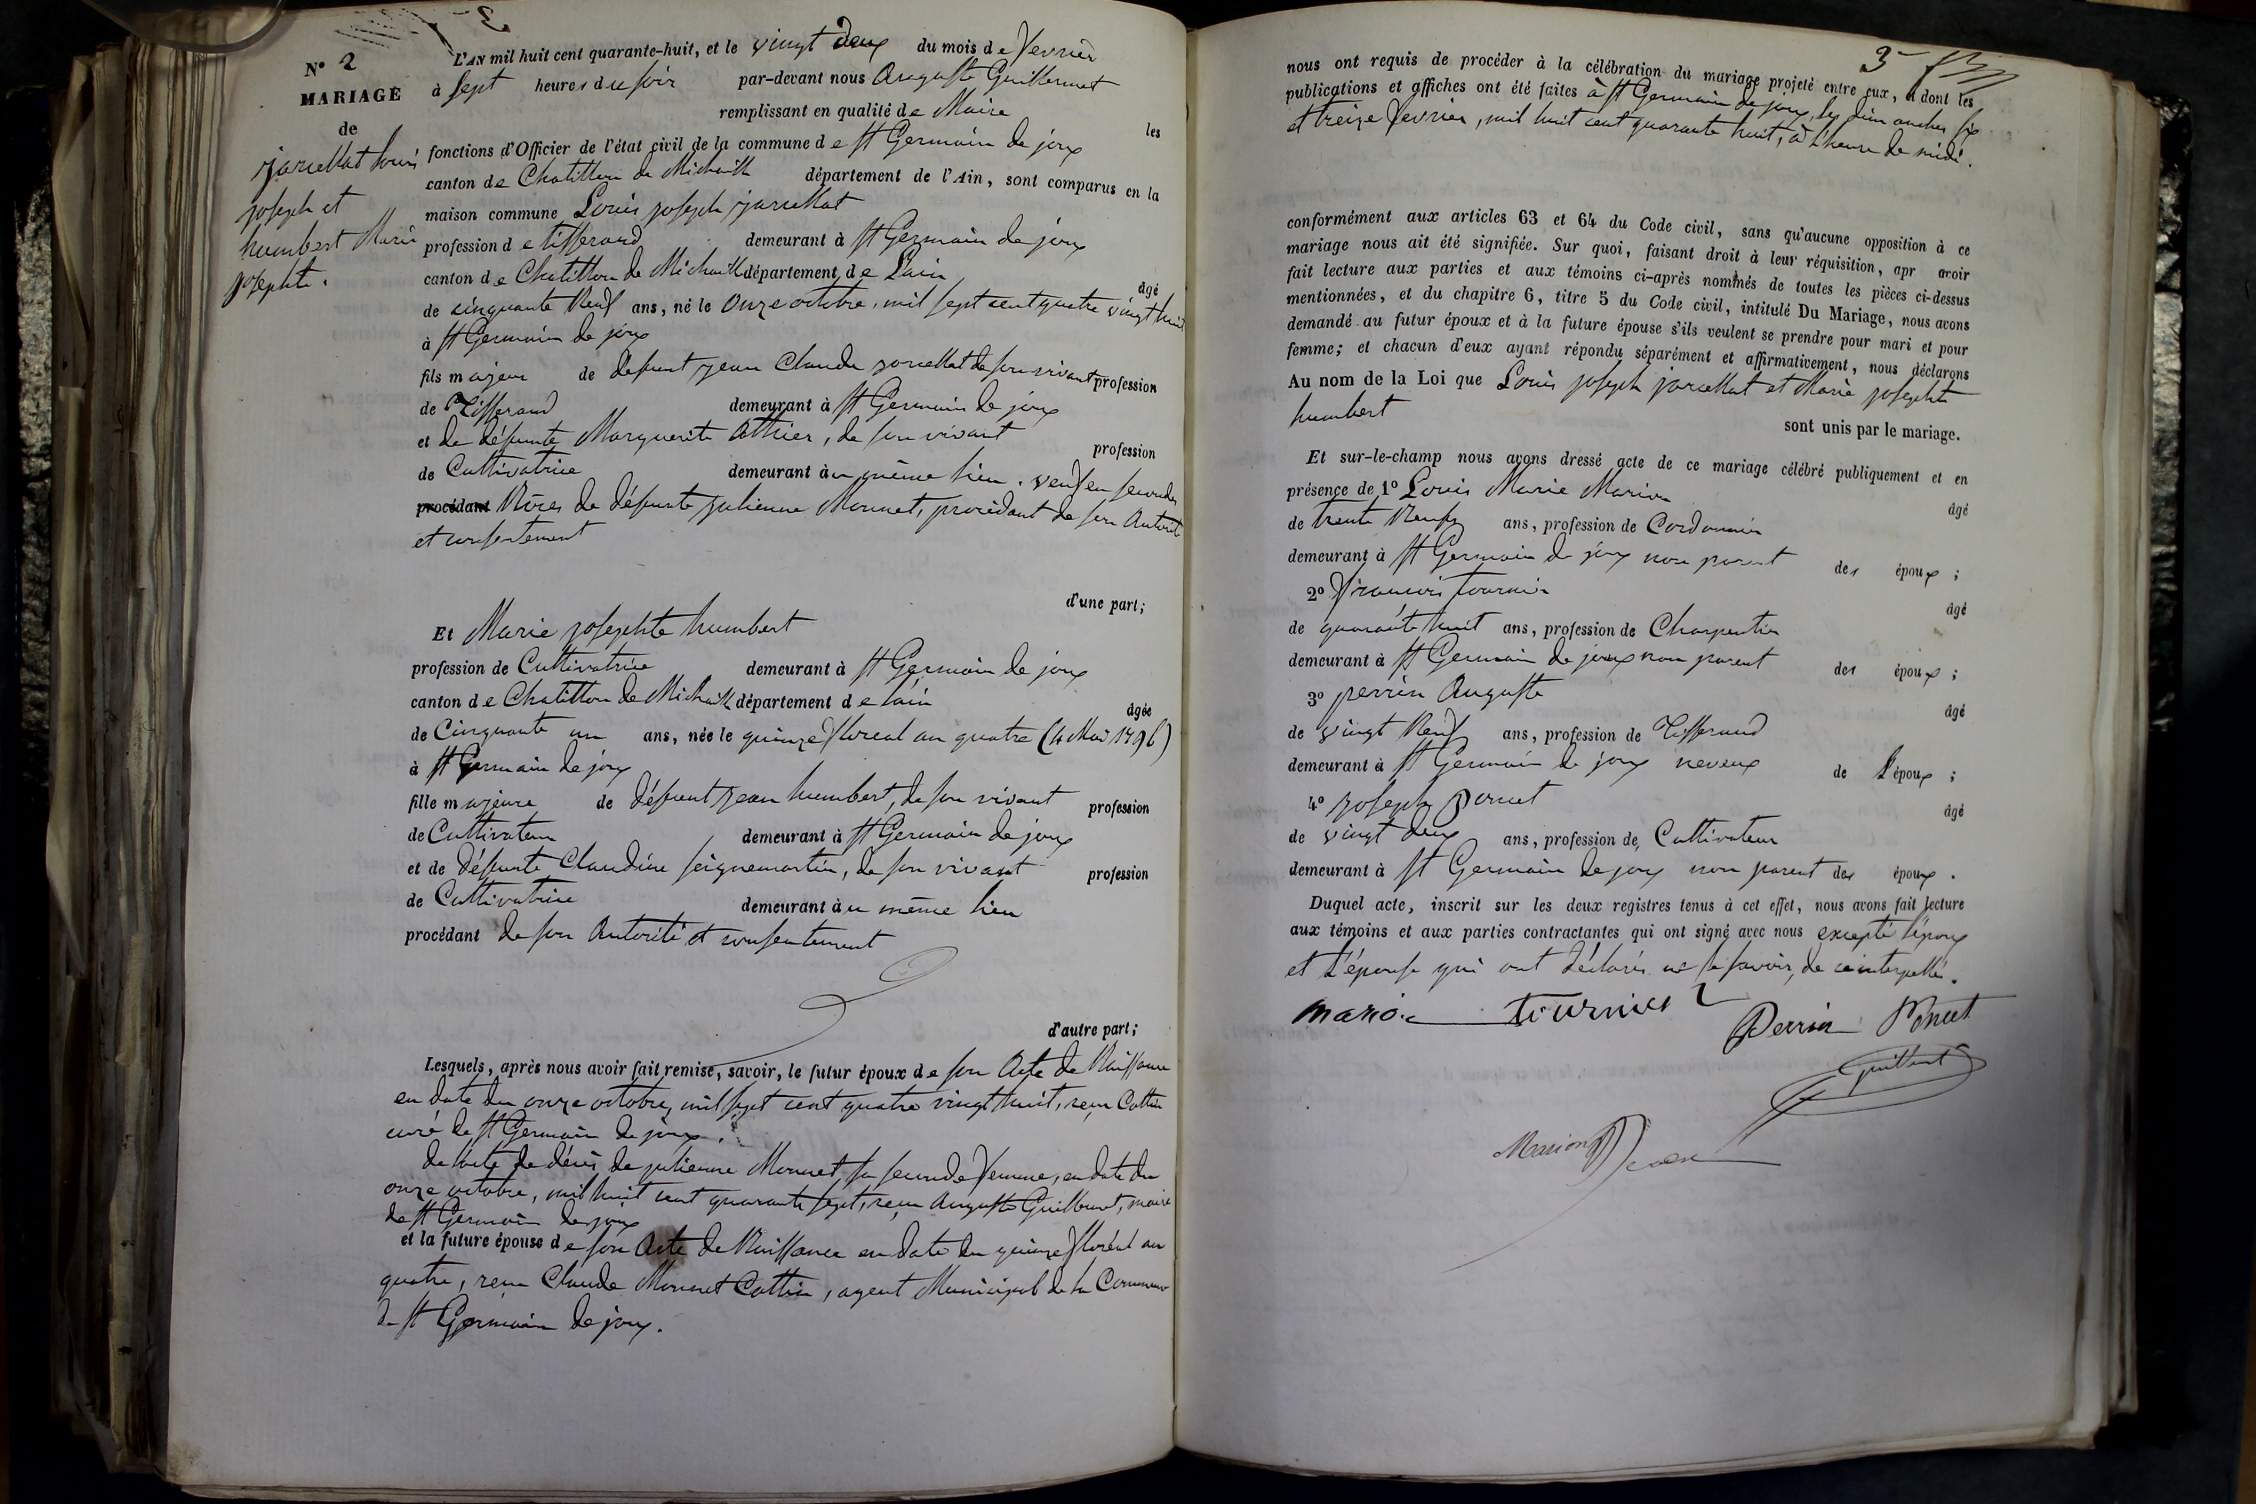 N° 2
MARIAGE
de
jarcellat louis
joseph et
humbert Marie
josephte.
L'AN mil huit cent quarante-huit, et le vingt deux du mois de fevrier
à sept heures du soir par-devant nous Auguste Guillermet
remplissant en qualité de Maire les
fonctions d'Officier de l'état civil de la commune de St Germain de joux
canton de Chatillon de Michaille département de l'Ain, sont comparus en la
maison commune Louis joseph jarcellat
profession de tisserand demeurant à St Germain de joux
canton de Chatillon de Michaille département de L'ain âgé
de cinquante neuf ans, né le onze octobre, mil sept cent quatre vingt huit
à St Germain de joux
fils majeur de defunt jean Claude jarcellat de son vivant profession
de Tisserand demeurant à St Germain de joux
et de défunte Marguerite Olhier, de son vivant profession
de Cultivatrice demeurant àu même lieu. veuf en secondes
procédant Nôces de défunte julienne Monnet, procédant de son Autorité
et consentement
d'une part;
Et Marie josephte humbert
profession de Cultivatrice demeurant à St Germain de joux
canton de Chatillon de Michaille département de lain âgée
de Cinquante un ans, née le quinze floreal an quatre (4 Mai 1796)
à St Germain de joux
fille majeure de défunt jean humbert, de son vivant profession
de Cultivateur demeurant à St Germain de joux
et de défunte Claudine seignemartin, de son vivant profession
de Cultivatrice demeurant àu même lieu
procédant de son Autorité et consentement
d'autre part;
Lesquels, après nous avoir fait remise, savoir, le futur époux de son Acte de Naissance
en date du onze octobre, mil sept cent quatre vingt huit, reçu Cottin
curé de St Germain de joux.
de l'acte de décès de julienne Monnet, sa seconde femme, en date du
onze octobre, mil huit cent quarante sept, reçu Auguste Guillermet, maire
de St Germain de joux
et la future épouse de son Acte de Naissance en date du quinze floréal an
quatre, reçu Claude Monnet Cottin, agent Municipal de la Commune
de St Germain de joux.
3
nous ont requis de procéder à la célébration du mariage projeté entre eux, et dont les
publications et affiches ont été faites à St Germain de joux, les dimanches six
et treize fevrier, mil huit cent quarante huit, à l'heure de midi.
conformément aux articles 63 et 64 du Code civil, sans qu'aucune opposition à ce
mariage nous ait été signifiée. Sur quoi, faisant droit à leur réquisition, apr avoir
fait lecture aux parties et aux témoins ci-après nommés de toutes les pièces ci-dessus
mentionnées, et du chapitre 6, titre 5 du Code civil, intitulé Du Mariage, nous avons
demandé au futur époux et à la future épouse s'ils veulent se prendre pour mari et pour
femme; et chacun d'eux ayant répondu séparément et affirmativement, nous déclarons
Au nom de la Loi que Louis joseph jarcellat et Marie josephte
humbert
sont unis par le mariage.
Et sur-le-champ nous avons dressé acte de ce mariage célébré publiquement et en
présence de 1° Louis Marie Marion âgé
de trente neuf ans, profession de Cordonnier
demeurant à St Germain de joux non parent des époux;
2° francois tournier âgé
de quarante huit ans, profession de Charpentier
demeurant à St Germain de joux non parent des époux;
3° perrin Auguste âgé
de vingt neuf ans, profession de Tisserand
demeurant à St Germain de joux neveux de l'époux;
4° joseph poncet âgé
de vingt deux ans, profession de Cultivateur
demeurant à St Germain de joux non parent des époux.
Duquel acte, inscrit sur les deux registres tenus à cet effet, nous avons fait lecture
aux témoins et aux parties contractantes qui ont signé avec nous excepté l'époux
et L'épouse qui ont déclarés ne le savoir, de ce interpellés.
marion tournier Perrin Poncet
Guillermet
Marion